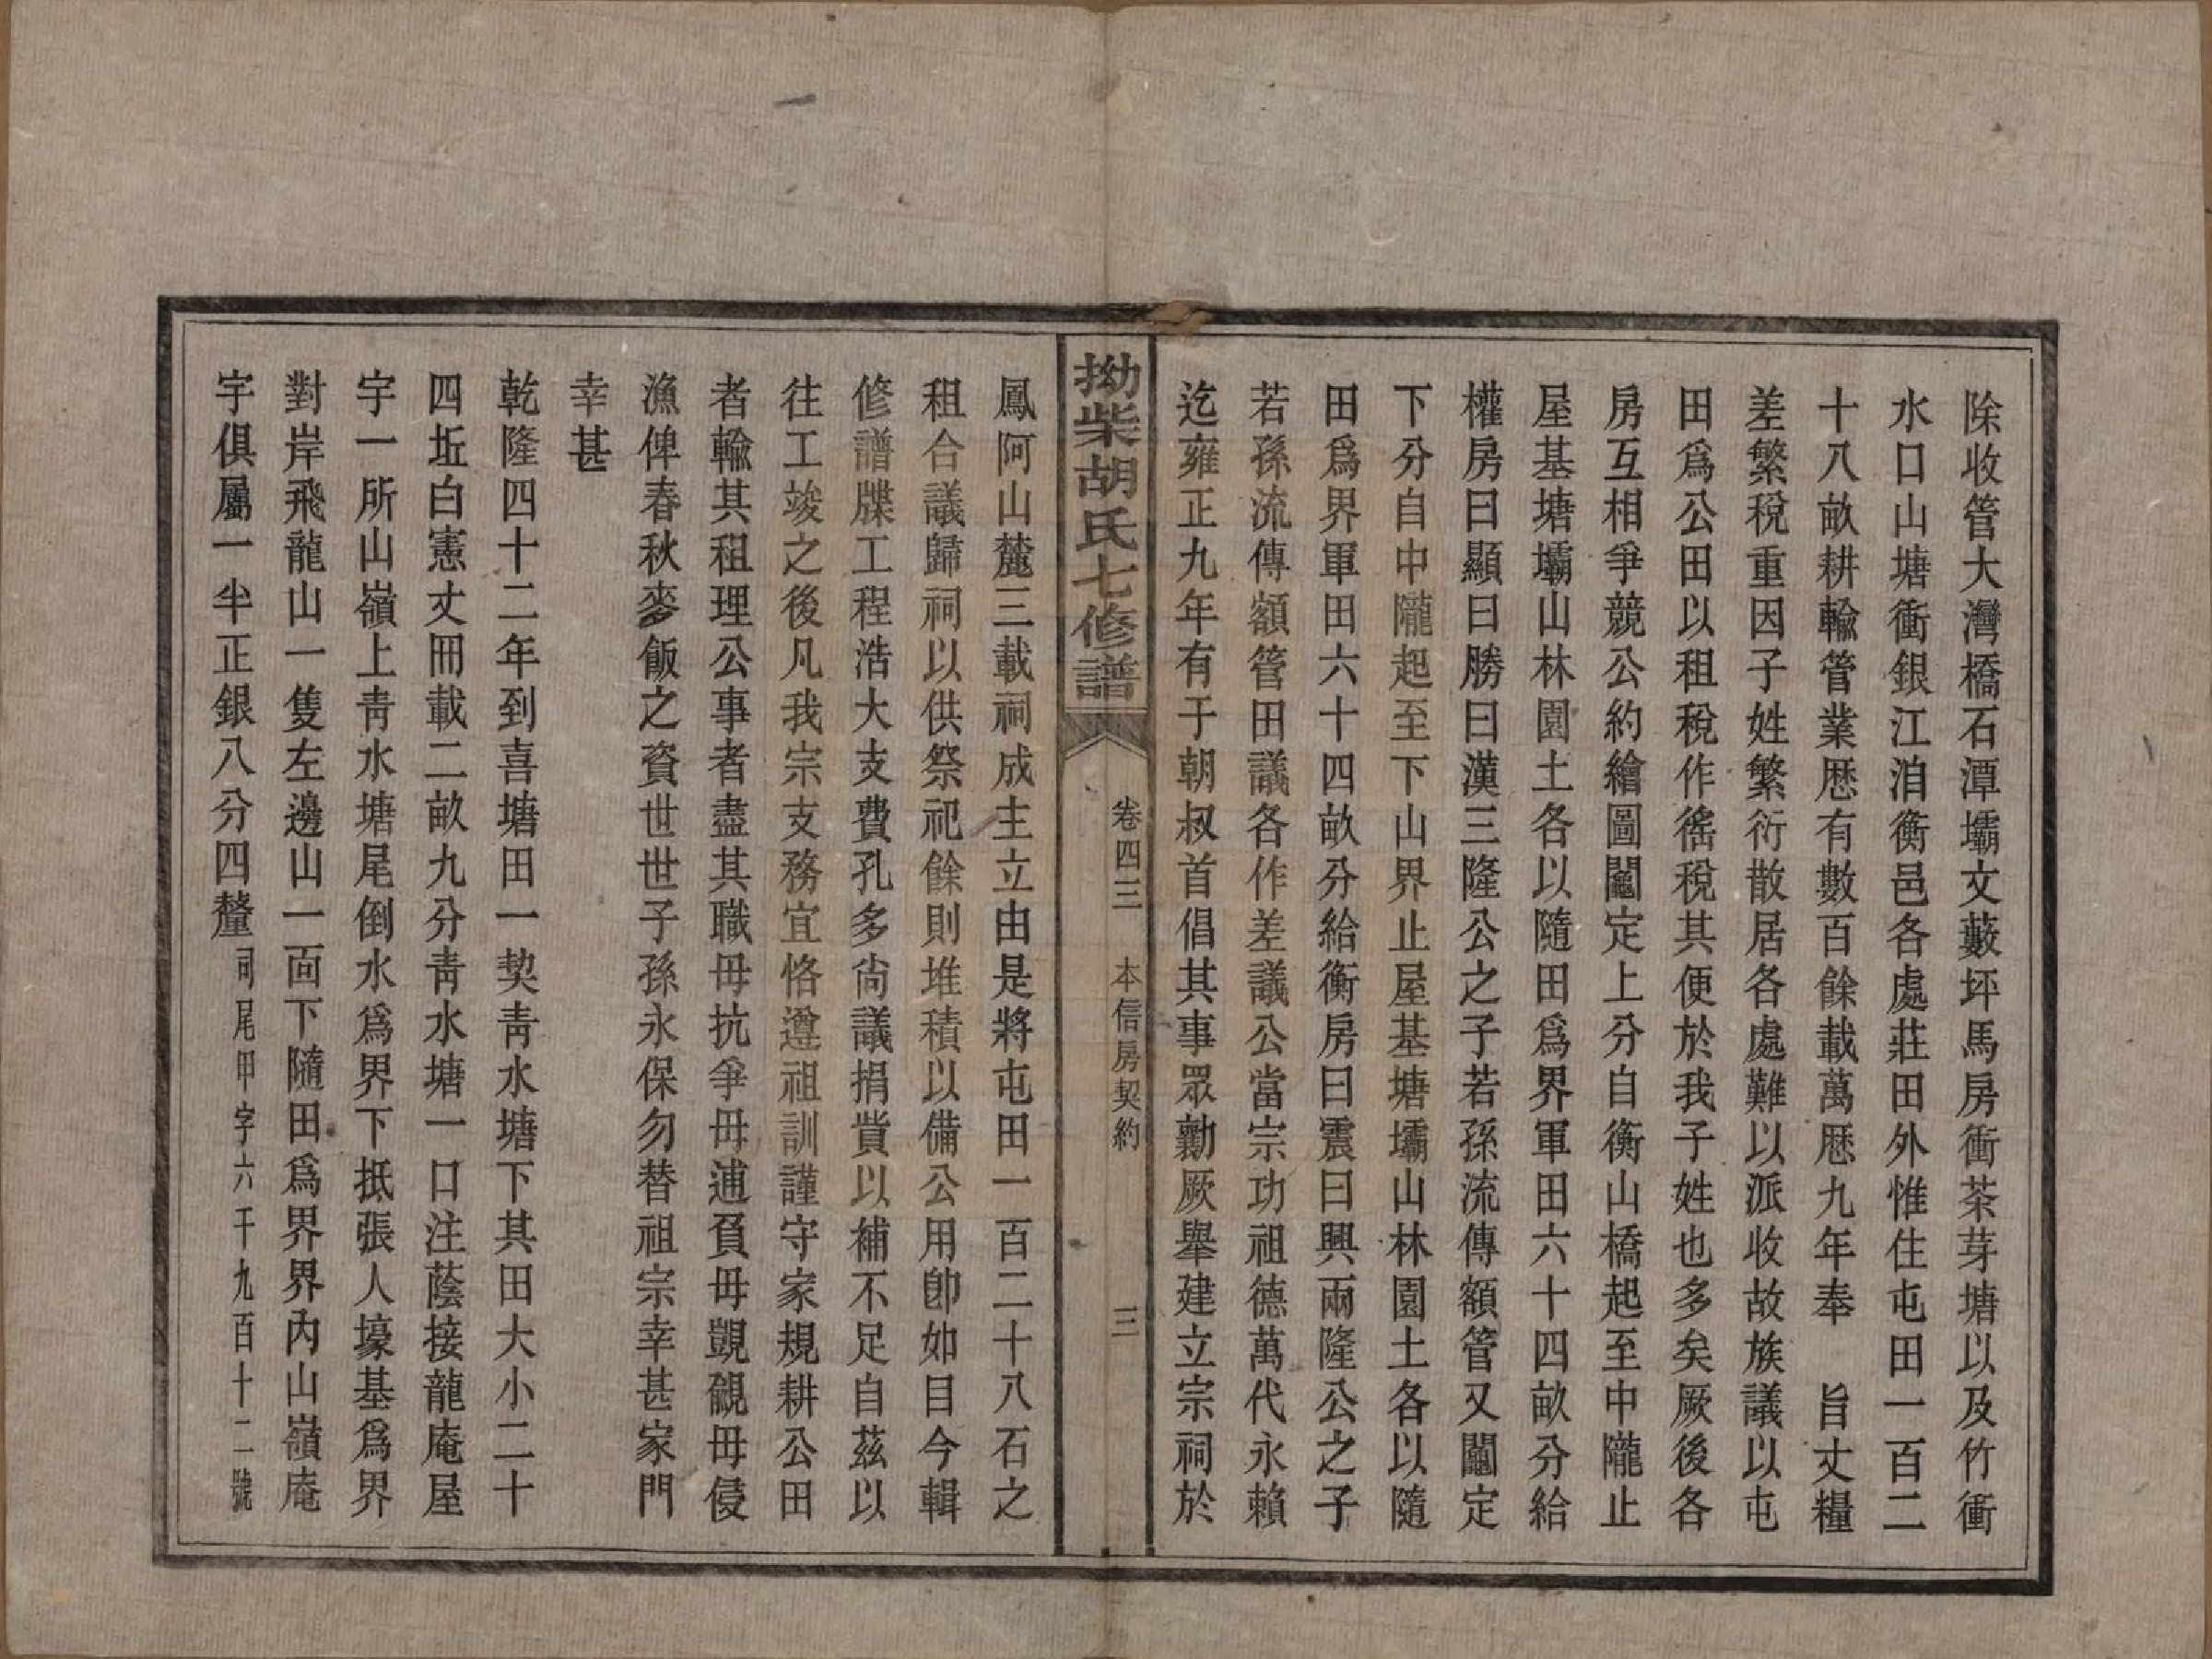 除收管大灣橋石潭壩文藪坪馬房衝茶芽塘以及竹衝
水口山塘衝銀江洎衡邑各處莊田外惟住屯田一百二
十八畝耕輸管業歷有數百餘載萬歷九年奉　旨丈糧
差繁稅重因子姓繁衍散居各處難以派收故族議以屯
田爲公田以租稅作徭稅其便於我子姓也多矣厥後各
房互相爭競公約繪圖鬮定上分自衡山橋起至中隴止
屋基塘壩山林園土各以隨田爲界軍田六十四畝分給
權房曰顯曰勝曰漢三隆公之子若孫流傳額管又鬮定
下分自中隴起至下山界止屋基塘壩山林園土各以隨
田爲界軍田六十四畝分給衡房曰震曰興兩隆公之子
若孫流傳額管田議各作差議公當宗功祖德萬代永賴
迄雍正九年有于朝叔首倡其事眾勷厥舉建立宗祠於
拗柴胡氏七修譜
卷四三　本信房契約
三
鳳阿山麓三載祠成主立由是將屯田一百二十八石之
租合議歸祠以供祭祀餘則堆積以備公用卽如目今輯
修譜牒工程浩大支費孔多尙議捐貲以補不足自茲以
往工竣之後凡我宗支務宜恪遵祖訓謹守家規耕公田
者輸其租理公事者盡其職毋抗爭毋逋負毋覬覦毋侵
漁俾春秋麥飯之資世世子孫永保勿替祖宗幸甚家門
幸甚
乾隆四十二年到喜塘田一契靑水塘下其田大小二十
四坵白憲丈冊載二畝九分靑水塘一口注蔭接龍庵屋
宇一所山嶺上靑水塘尾倒水爲界下抵張人壕基爲界
對岸飛龍山一隻左邊山一面下隨田爲界界內山嶺庵
宇俱屬一半正銀八分四釐司尾甲字六千九百十二號